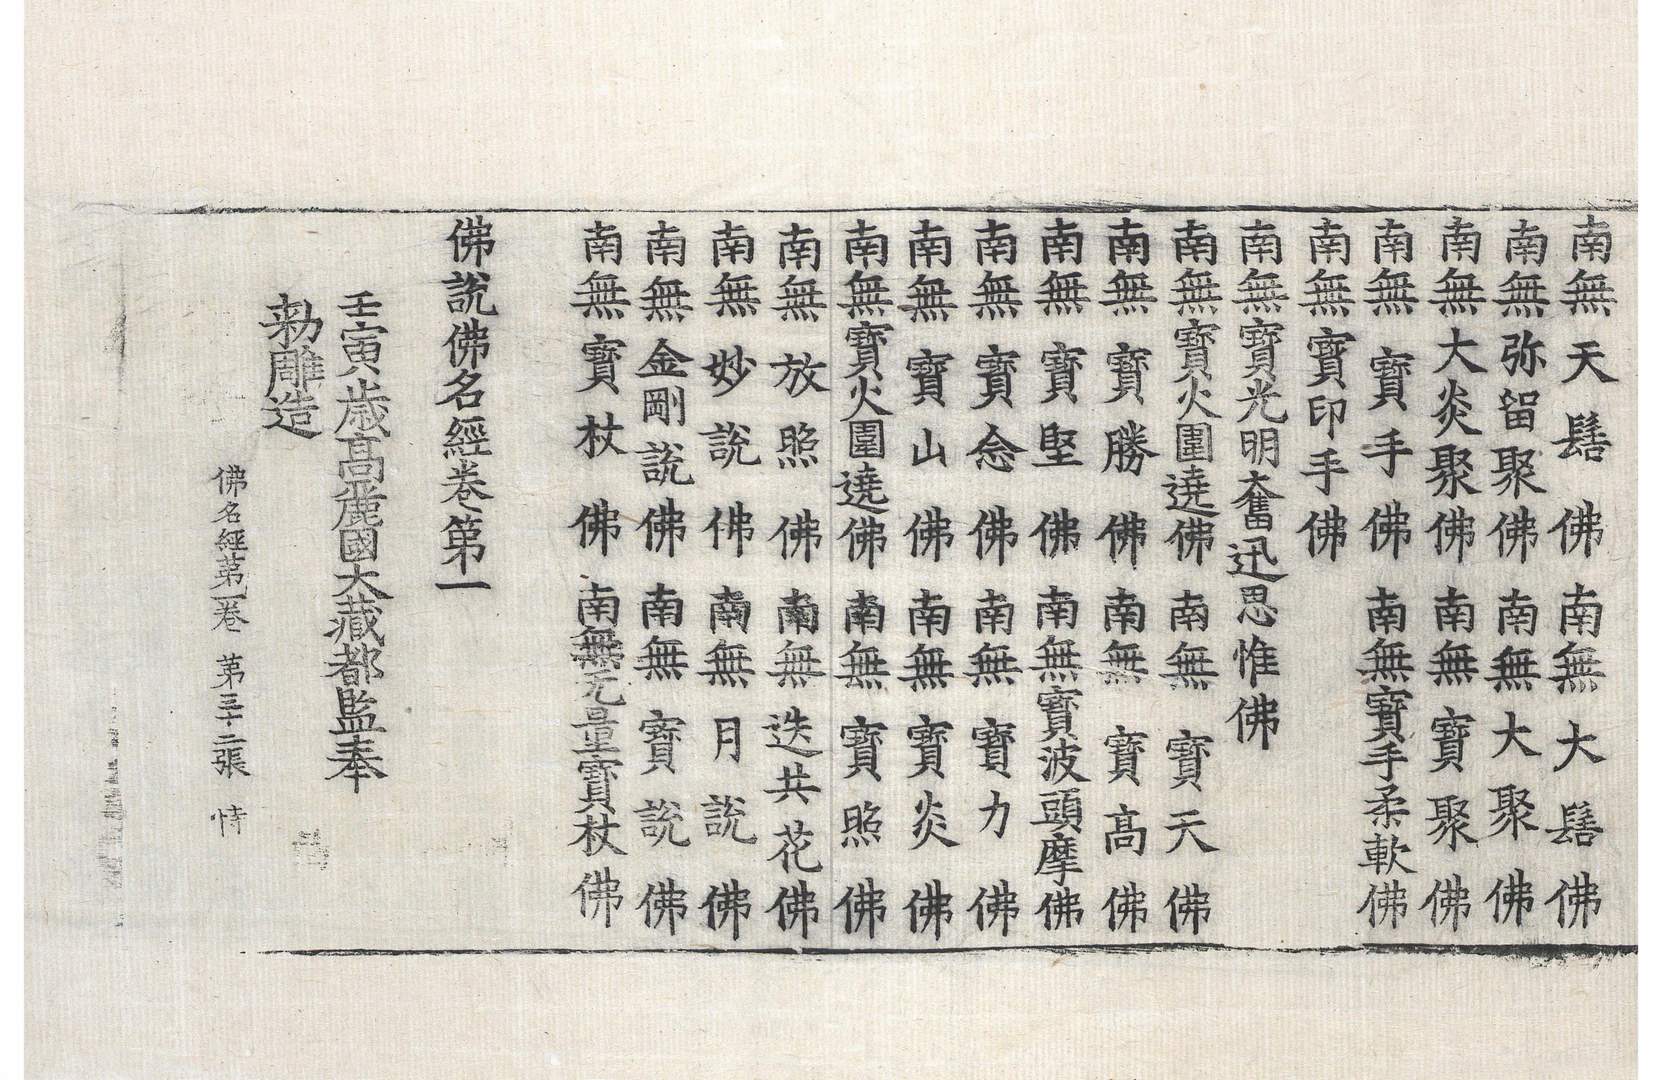 南無天髻佛南無大髻佛
南無弥留聚佛南無大聚佛
南無大炎聚佛南無寶聚佛
南無寶手佛南無寶手柔軟佛
南無寶印手佛
南無寶光明奮迅思惟佛
南無寶火圍遶佛南無寶天佛
南無寶勝佛南無寶高佛
南無寶堅佛南無寶波頭摩佛
南無寶念佛南無寶力佛
南無寶山佛南無寶炎佛
南無寶火圍遶佛南無寶照佛
南無放照佛南無迭共花佛
南無妙說佛南無月說佛
南無金剛說佛南無寶說佛
南無寶杖佛南無无量寶杖佛
佛說佛名經卷第一
壬寅歲高麗國大藏都監奉
勑雕造
佛名經第一卷 第三十二張 恃